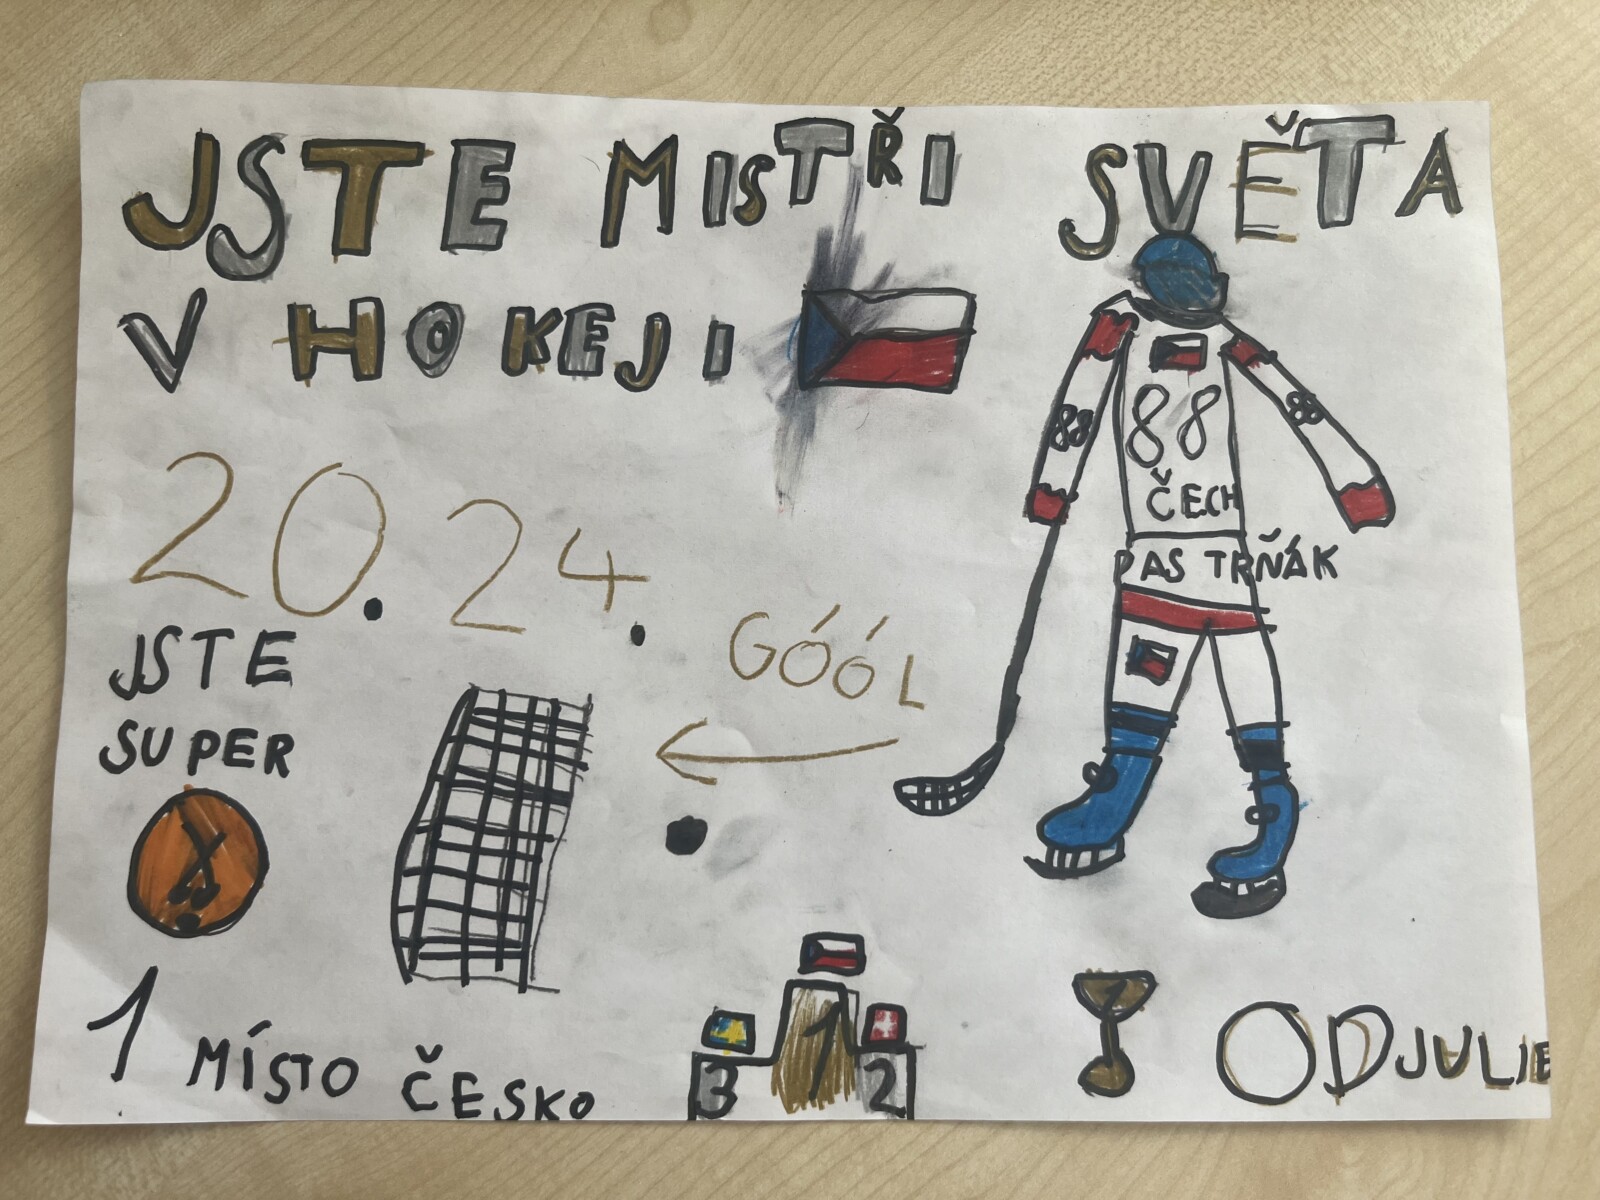 JSTE MISTŘI SVĚTA
V HOKEJI
20.24.
JSTE
SUPER
GÓÓL
88
88
88
ČECH
PASTRŇÁK
1 MÍSTO ČESKO
3 1 2
1
OD JULIE